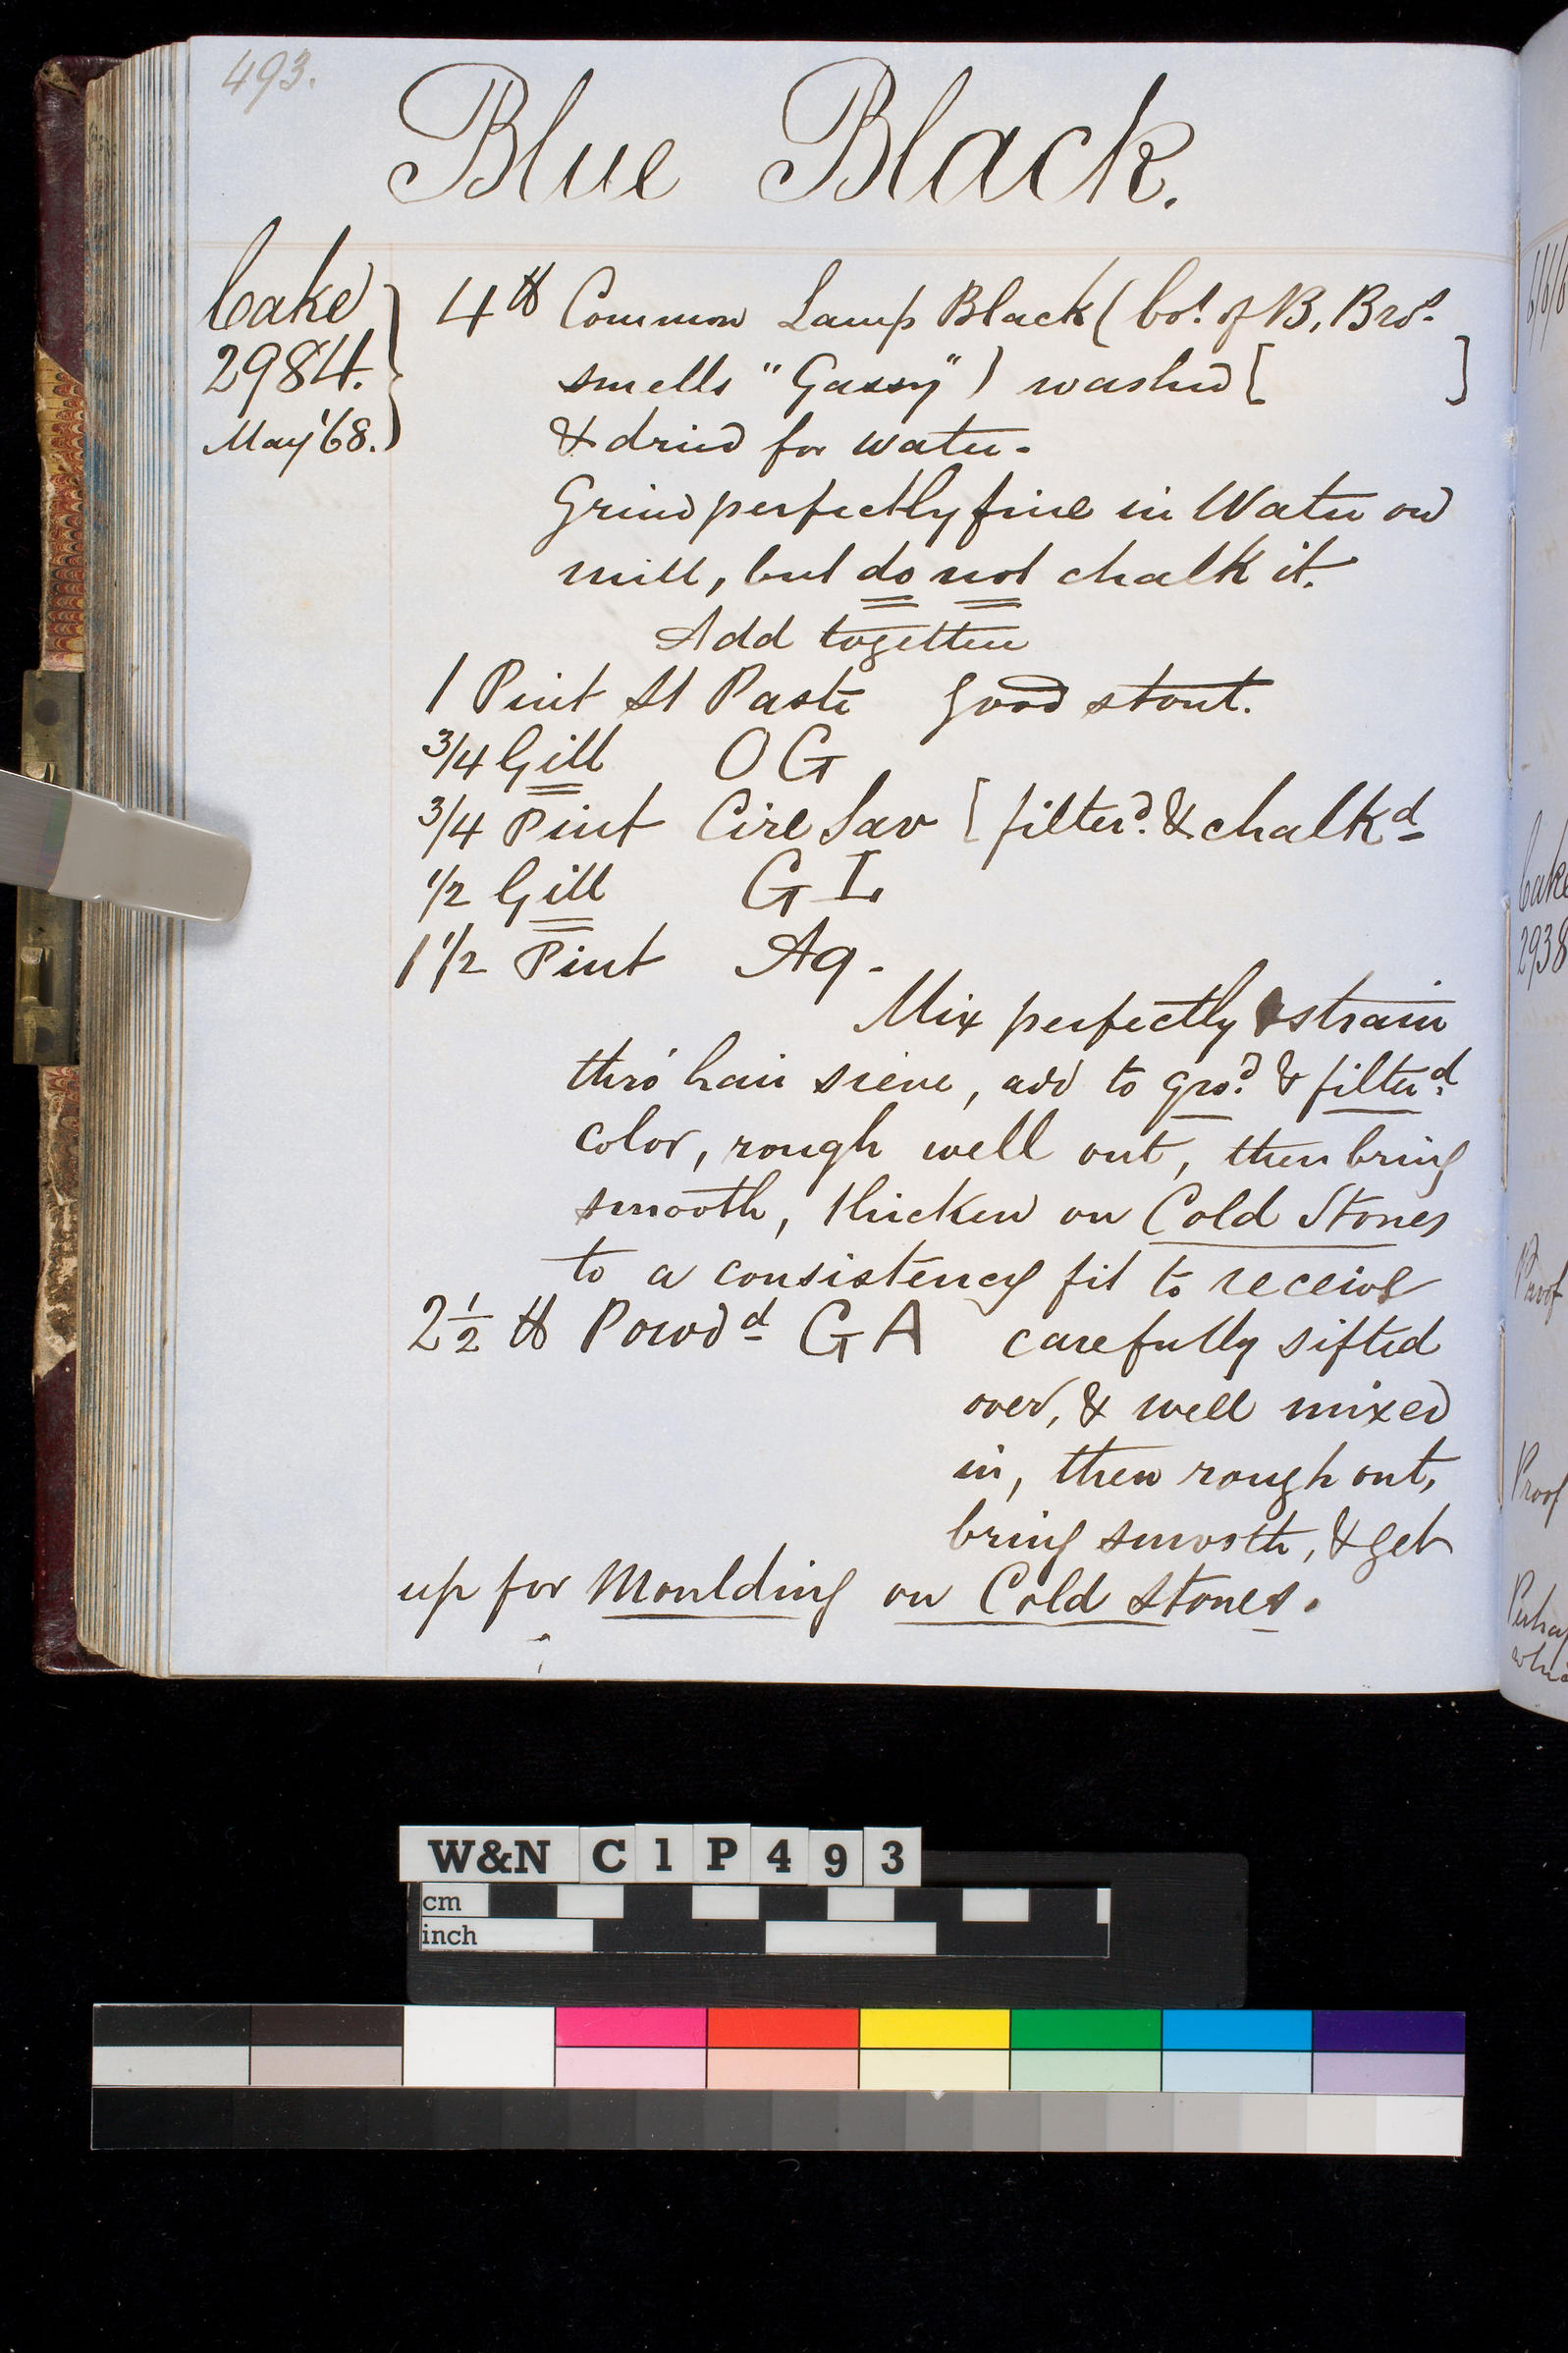 493.
Blue Black.
Cake
2984.
May '68.
4 lb Common Lamp Black (bot. of B, Bros.
smells "Gassy") washed [ ]
& dried for water.
Grind perfectly fine in Water on
mill, but do not chalk it.
Add together
1 Pint St Paste good stout.
3/4 Gill O G
3/4 Pint Cire Sav [filterd. & chalkd
1/2 Gill G L
1 1/2 Pint Aq.
Mix perfectly & strain
thro' hair sieve, add to grod. & filterd.
color, rough well out, then bring
smooth, thicken on Cold Stones
to a consistency fit to receive
2 1/2 lb Powdd G A carefully sifted
over, & well mixed
in, then rough out,
bring smooth, & get
up for Moulding on Cold Stones.
Cake
2938
Proof
Proof
W&N C1P493
cm
inch